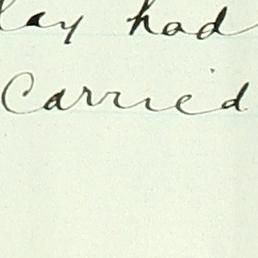 lay had
Carried